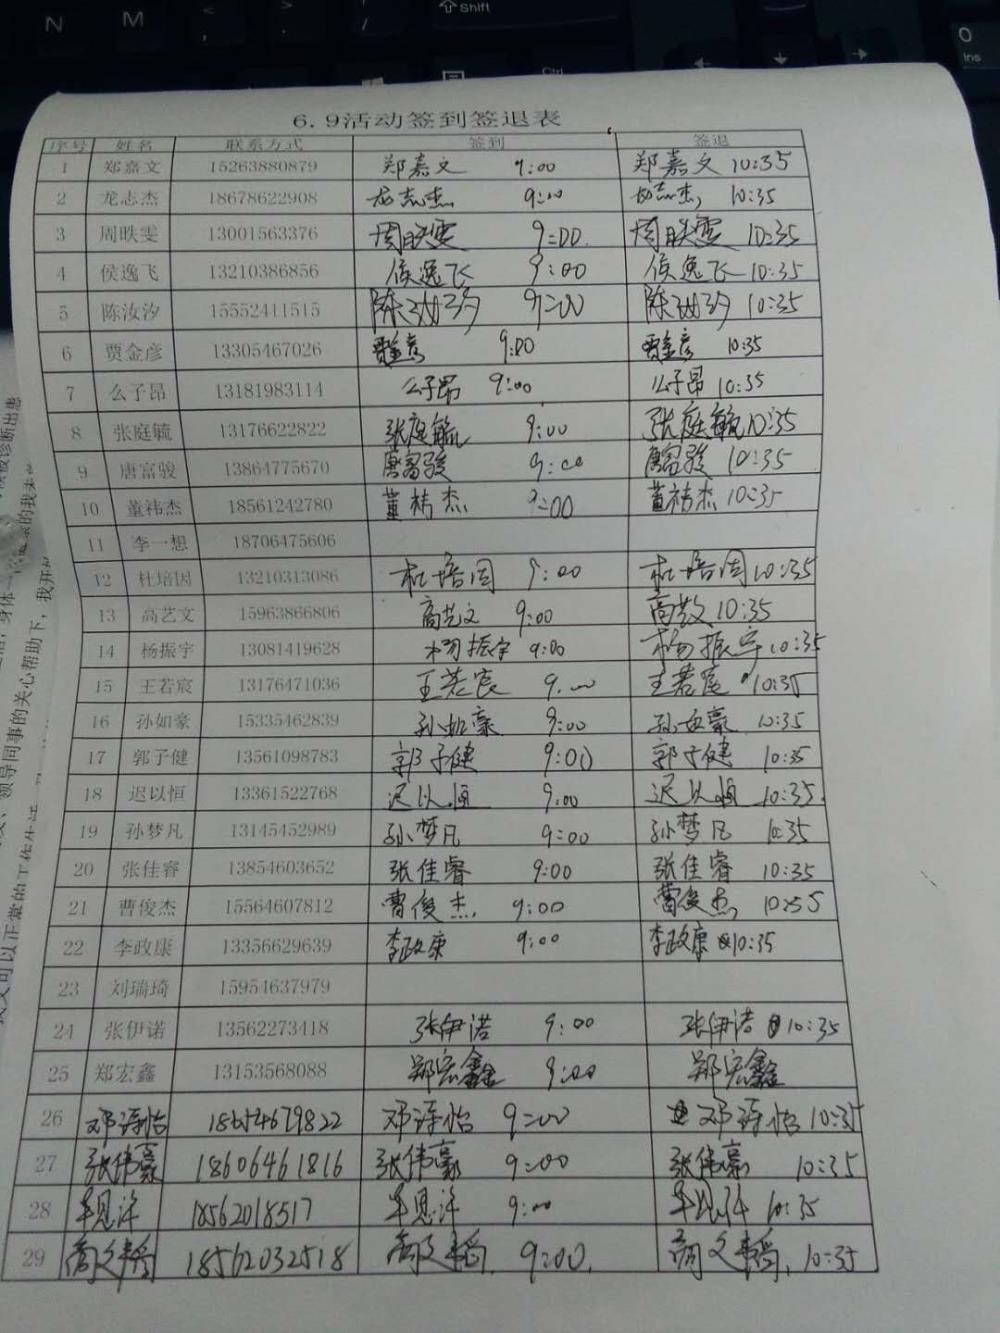 N M Shift
Ctrl
0
Ins
6.9活动签到签退表
序号 姓名 联系方式 签到 签退
1 郑嘉文 15263880879 郑嘉文 9:00 郑嘉文 10:35
2 龙志杰 18678622908 龙志杰 9:00 龙志杰 10:35
3 周昳雯 13001563376 周昳雯 9:00 周昳雯 10:35
4 侯逸飞 13210386856 侯逸飞 9:00 侯逸飞 10:35
5 陈汝汐 15552411515 陈汝汐 9:00 陈汝汐 10:35
6 贾金彦 13305467026 贾金彦 9:00 贾金彦 10:35
7 么子昂 13181983114 么子昂 9:00 么子昂 10:35
8 张庭毓 13176622822 张庭毓 9:00 张庭毓 10:35
9 唐富骏 13864775670 唐富骏 9:00 唐富骏 10:35
10 董祎杰 18561242780 董祎杰 9:00 董祎杰 10:35
11 李一想 18706475606
12 杜培因 13210313086 杜培因 9:00 杜培因 10:35
13 高艺文 15963866806 高艺文 9:00 高艺文 10:35
14 杨振宇 13081419628 杨振宇 9:00 杨振宇 10:35
15 王若宸 13176471036 王若宸 9:00 王若宸 10:35
16 孙如豪 15335462839 孙如豪 9:00 孙如豪 10:35
17 郭子健 13561098783 郭子健 9:00 郭子健 10:35
18 迟以恒 13361522768 迟以恒 9:00 迟以恒 10:35
19 孙梦凡 13145452989 孙梦凡 9:00 孙梦凡 10:35
20 张佳睿 13854603652 张佳睿 9:00 张佳睿 10:35
21 曹俊杰 15564607812 曹俊杰 9:00 曹俊杰 10:35
22 李政康 13356629639 李政康 9:00 李政康 10:35
23 刘瑞琦 15954637979
24 张伊诺 13562273418 张伊诺 9:00 张伊诺 10:35
25 郑宏鑫 13153568088 郑宏鑫 9:00 郑宏鑫
26 邓淳怡 18654679822 邓淳怡 9:00 邓淳怡 10:35
27 张伟豪 18606461816 张伟豪 9:00 张伟豪 10:35
28 18562018517 9:00 10:35
29 18562032518 9:00. 10:35